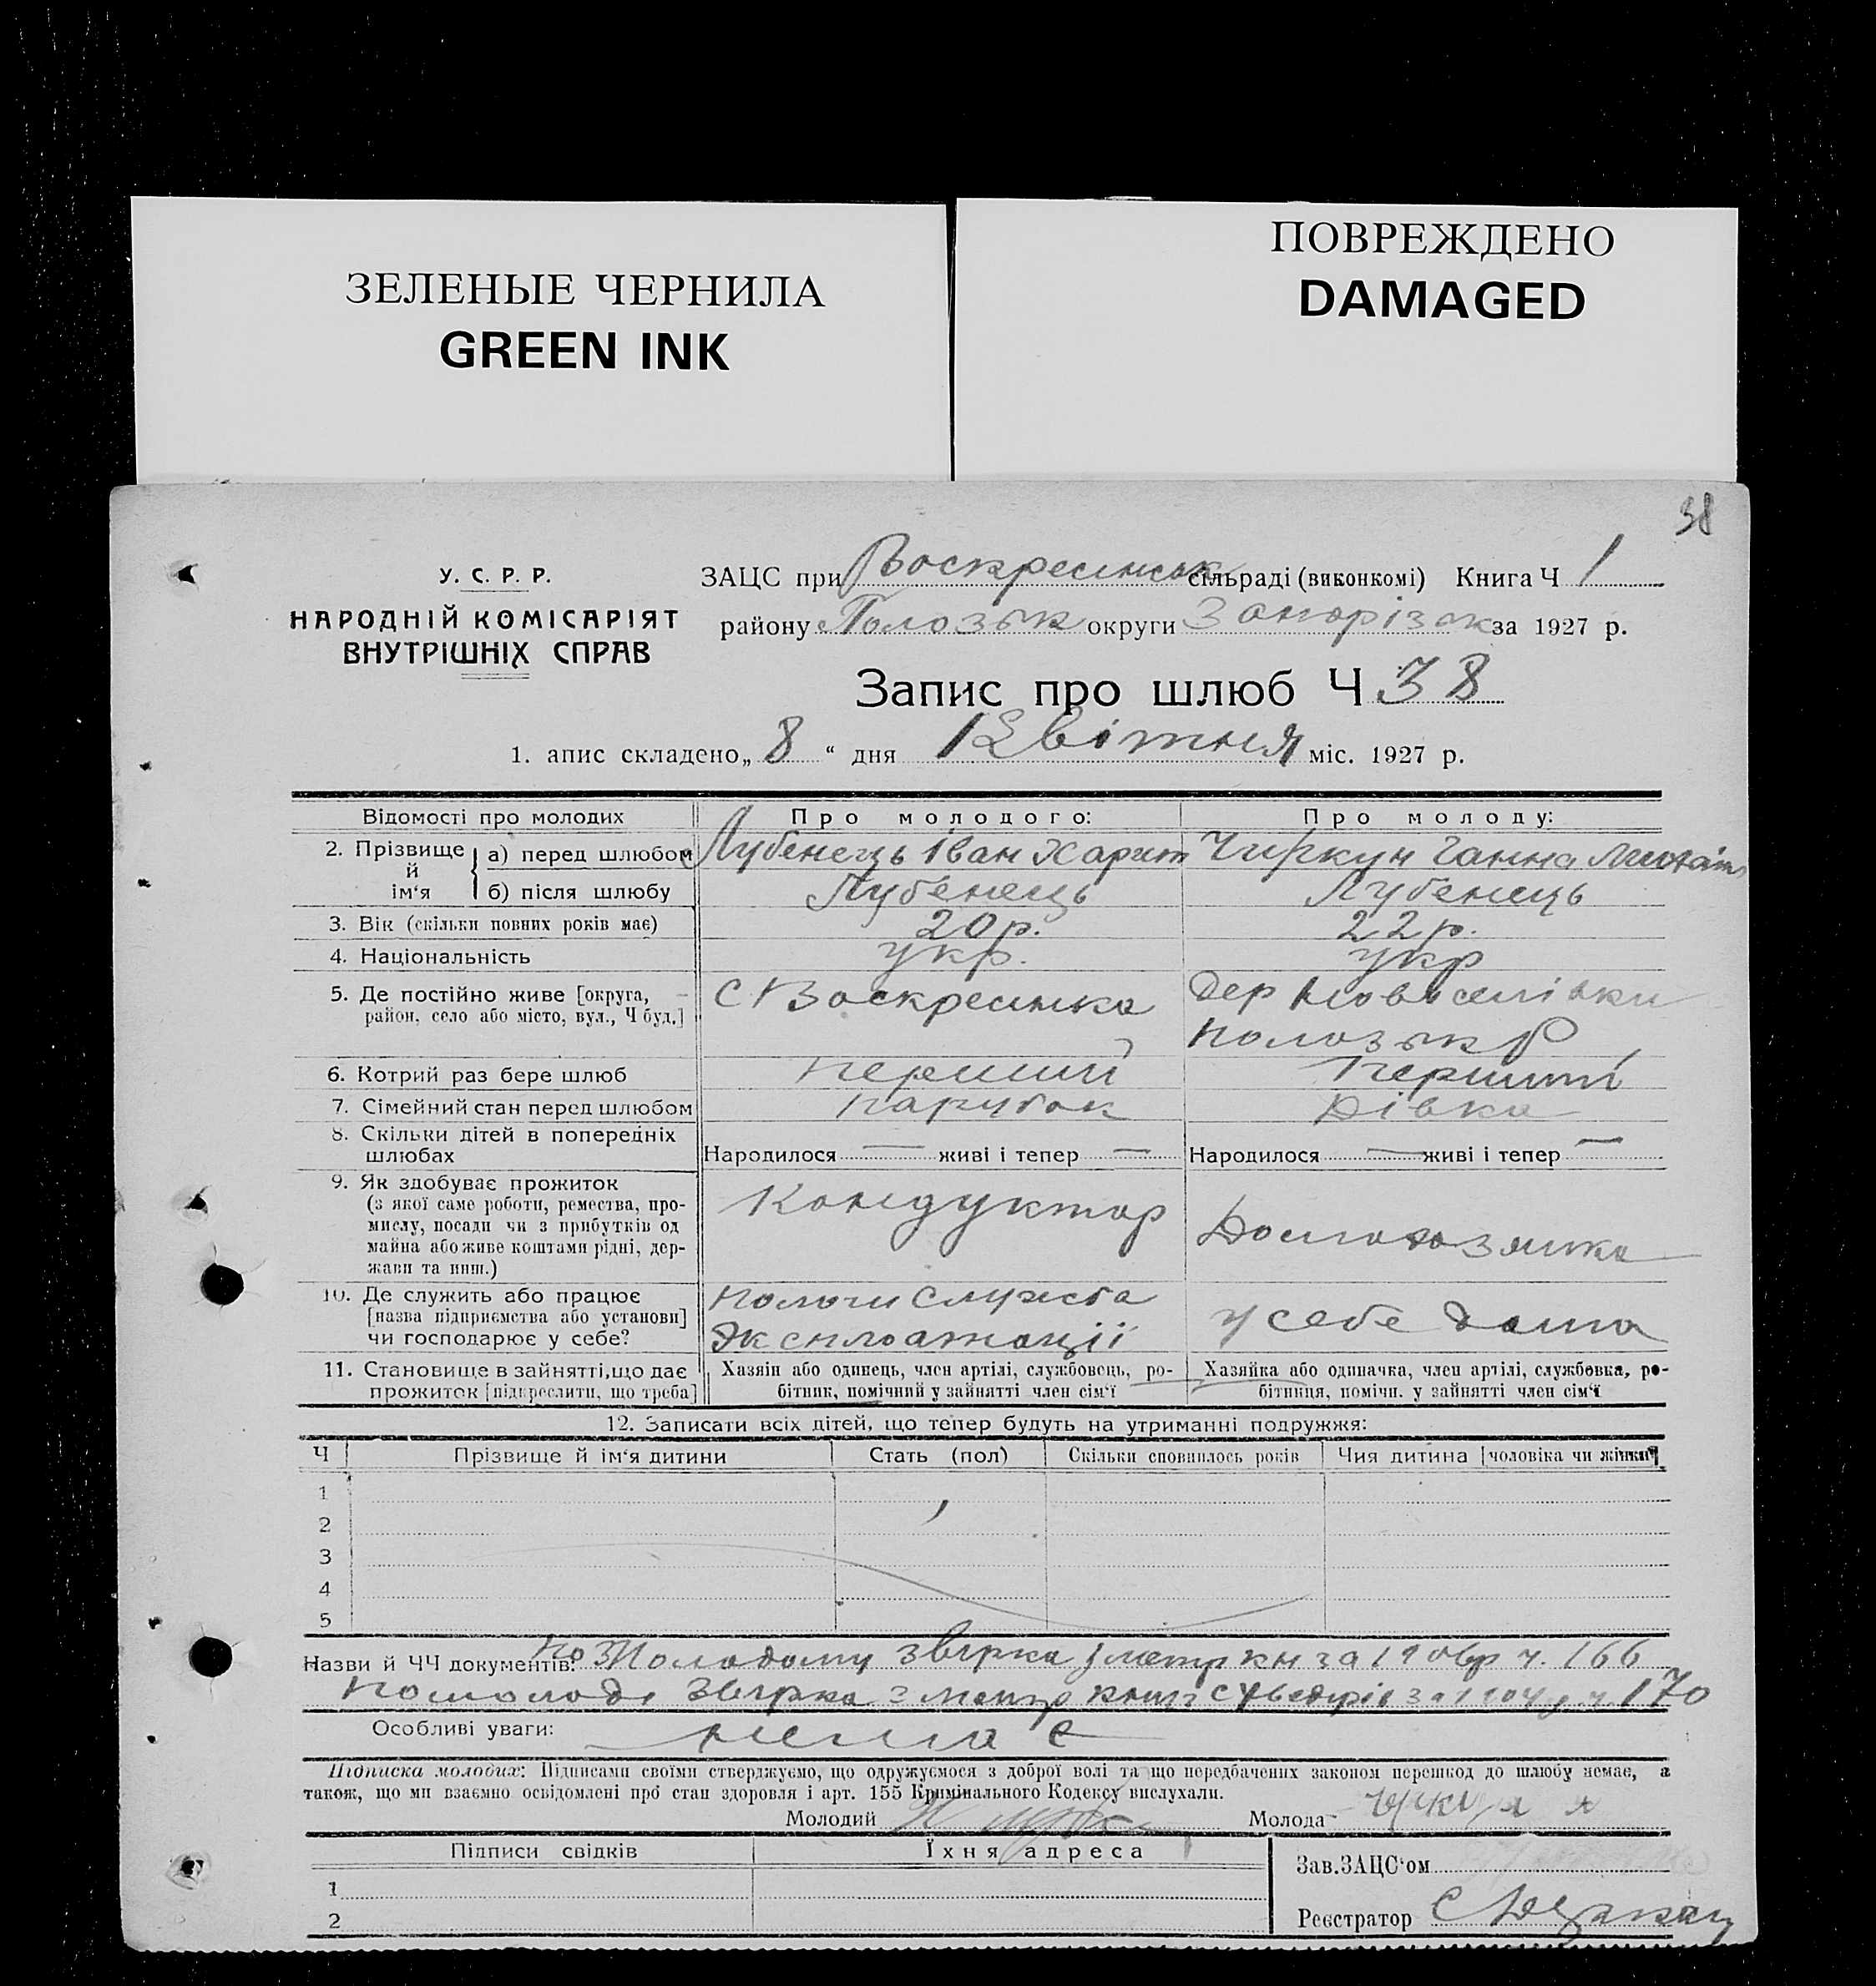 ЗЕЛЕНЫЕ ЧЕРНИЛА
GREEN INK
ПОВРЕЖДЕНО
DAMAGED
38
У. С. Р. Р.
НАРОДНІЙ КОМІСАРІЯТ
ВНУТРІШНІХ СПРАВ
ЗАЦС при Воскресинськ сільраді (виконкомі) Книга Ч 1
району Пологзьк округи Запорізьк за 1927 р.
Запис про шлюб Ч 38
1. апис складено „ 8 “ дня Квітня міс. 1927 р.
Відомості про молодих Про молодого: Про молоду:
2. Прізвище й ім‘я
а) перед шлюбом Лубенець Іван Харит Чиркун Ганна
б) після шлюбу Лубенець Лубенець
3. Вік (скільки повних років має) 20 р. 22 р.
4. Національність укр. укр
5. Де постійно живе [округа, С Воскресинка Дер Новоселівки
район, село або місто, вул., Ч буд.]
6. Котрий раз бере шлюб Перший Перший
7. Сімейний стан перед шлюбом Парубок Дівка
8. Скільки дітей в попередніх
шлюбах Народилося — живі і тепер — Народилося — живі і тепер —
9. Як здобуває прожиток
(з якої саме роботи, ремества, про-
мислу, посади чи з прибутків од
майна або живе коштами рідні, дер-
жави та инш.)
Кондуктор Домохозяйка
10. Де служить або працює
[назва підприємства або установи]
чи господарює у себе?
Пологи Служба
Эксплоатації
у себе дома
11. Становище в зайнятті, що дає
прожиток [підкреслити, що треба]
Хазяін або одинець, член артілі, службовець, ро-
бітник, помічний у зайнятті член сім‘ї
Хазяйка або одиначка, член артілі, службовка, ро-
бітниця, помічн. у зайнятті член сім‘ї
12. Записати всіх дітей, що тепер будуть на утриманні подружжя:
Ч Прізвище й ім‘я дитини Стать (пол) Скільки сповнилось років Чия дитина [чоловіка чи жінки]
1
2
3
4
5
Назви й ЧЧ документів: По Молодому звірка з метр кн за ч. 166
По молоді звірка з метр книг за 1904 р ч. 170
Особливі уваги: немає
Підписка молодих: Підписами своїми стверджуємо, що одружуємося з доброї волі та що передбачених законом перешкод до шлюбу немає, а
також, що ми взаємно освідомлені про стан здоровля і арт. 155 Кримінального Кодексу вислухали.
Молодий Молода
Підписи свідків Їхня адреса
1
2
Зав.ЗАЦС‘ом
Реєстратор